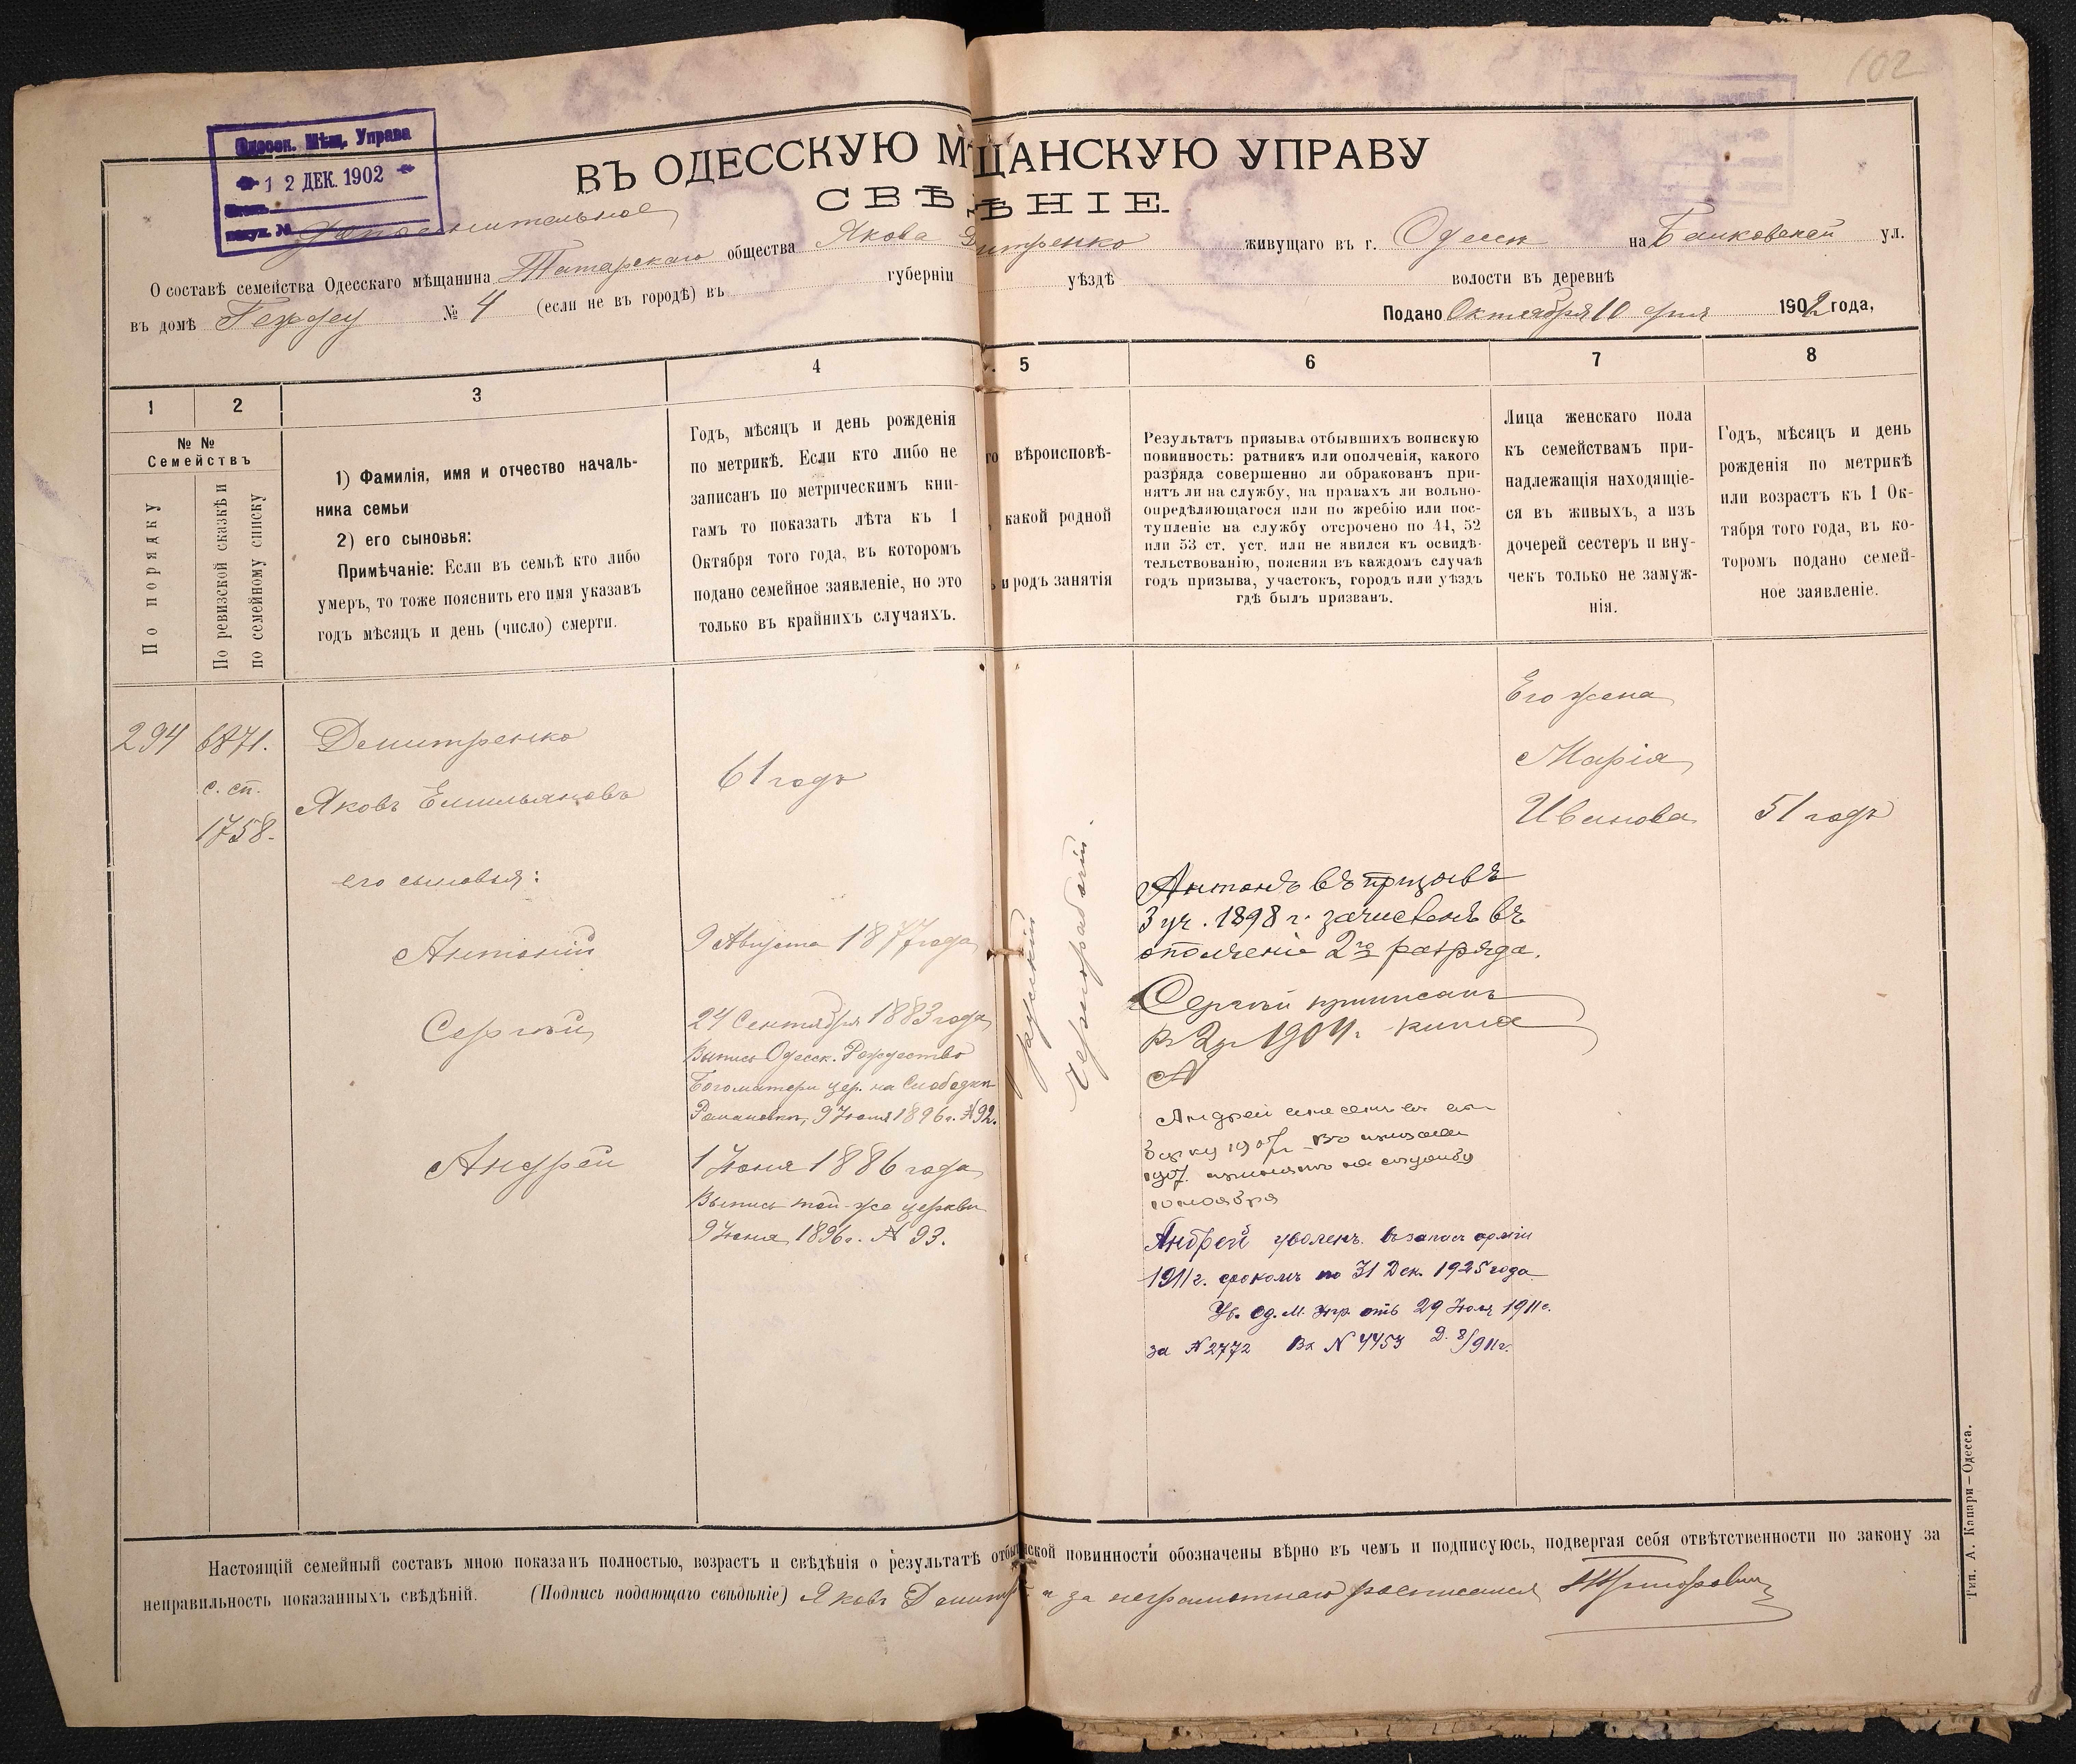 102
Одесск. Мѣщ. Управа
12 ДЕК. 1902
ВЪ ОДЕССКУЮ МѢЩАНСКУЮ УПРАВУ
СВѢДѢНІЕ.
Дополнительное
О составѣ семейства Одесскаго мѣщанина Татарскаго общества Якова Дмитренко живущаго въ г. Одессѣ на ул.
въ домѣ № 4 (если не въ городѣ) въ губерніи уѣздѣ волости въ деревнѣ
Подано Октября 10 дня 1902 года,
1 2 3 4 5 6 7 8
№ №
Семействъ
По порядку
По ревизской сказкѣ и
по семейному списку
1) Фамилія, имя и отчество началь-
ника семьи
2) его сыновья:
Примѣчаніе: Если въ семьѣ кто либо
умеръ, то тоже пояснить его имя указавъ
годъ мѣсяцъ и день (число) смерти.
Годъ, мѣсяцъ и день рожденія
по метрикѣ. Если кто либо не
записанъ по метрическимъ кни-
гамъ то показать лѣта къ 1
Октября того года, въ которомъ
подано семейное заявленіе, но это
только въ крайнихъ случаяхъ.
го вѣроисповѣ-
какой родной
и родъ занятія
Результатъ призыва отбывшихъ воинскую
повинность: ратникъ или ополченія, какого
разряда совершенно ли обракованъ при-
нятъ ли на службу, на правахъ ли вольно-
опредѣляющагося или по жребію или пос-
тупленіе на службу отсрочено по 44, 52
или 53 ст. уст. или не явился къ освидѣ-
тельствованію, поясняя въ каждомъ случаѣ
годъ призыва, участокъ, городъ или уѣздъ
гдѣ былъ призванъ.
Лица женскаго пола
къ семействамъ при-
надлежащія находящіе-
ся въ живыхъ, а изъ
дочерей сестеръ и вну-
чекъ только не замуж-
нія.
Годъ, мѣсяцъ и день
рожденія по метрикѣ
или возрастъ къ 1 Ок-
тября того года, въ ко-
торомъ подано семей-
ное заявленіе.
294
6871.
с. сп.
1758.
Демитренко
Яковъ Емильяновъ
61 годъ
его сыновья:
Антоній
9 Августа 1877 года
Сергѣй
24 Сентября 1883 года
Выпись Одесск. Рождество
Богоматери цер. на Слободкѣ
Романовкѣ, 9 Іюня 1896 г. № 92.
Андрей
1 Іюня 1886 года
Выпись той-же церкви
9 Іюня 1896 г. № 93.
русскій
Чернорабочій.
Антонъ въ призывъ
3 уч. 1898 г. зачисленъ въ
ополченіе 2го разряда.
Сергѣй приписанъ
1904 г.
№
Андрей внесенъ въ
1907 г. Въ призывъ
1907 принятъ на службу
ноября
Андрей уволенъ въ запас арміи
1911 г. срокомъ по 31 Дек. 1925 года
Ув. Од. М. Упр. отъ 29 Іюля 1911 г.
за № 2772 Вх № 4453 Д. 8/911 г.
Его жена
Марія
Иванова
51 годъ
Настоящій семейный составъ мною показанъ полностью, возрастъ и свѣдѣнія о результатѣ отбы нской повинности обозначены вѣрно въ чемъ и подписуюсь, подвергая себя отвѣтственности по закону за
неправильность показанныхъ свѣдѣній. (Подпись подающаго свѣдѣніе) Яковъ Демитр а за неграмотнаго росписался Григоровичъ
Тип. А. Капари—Одесса.